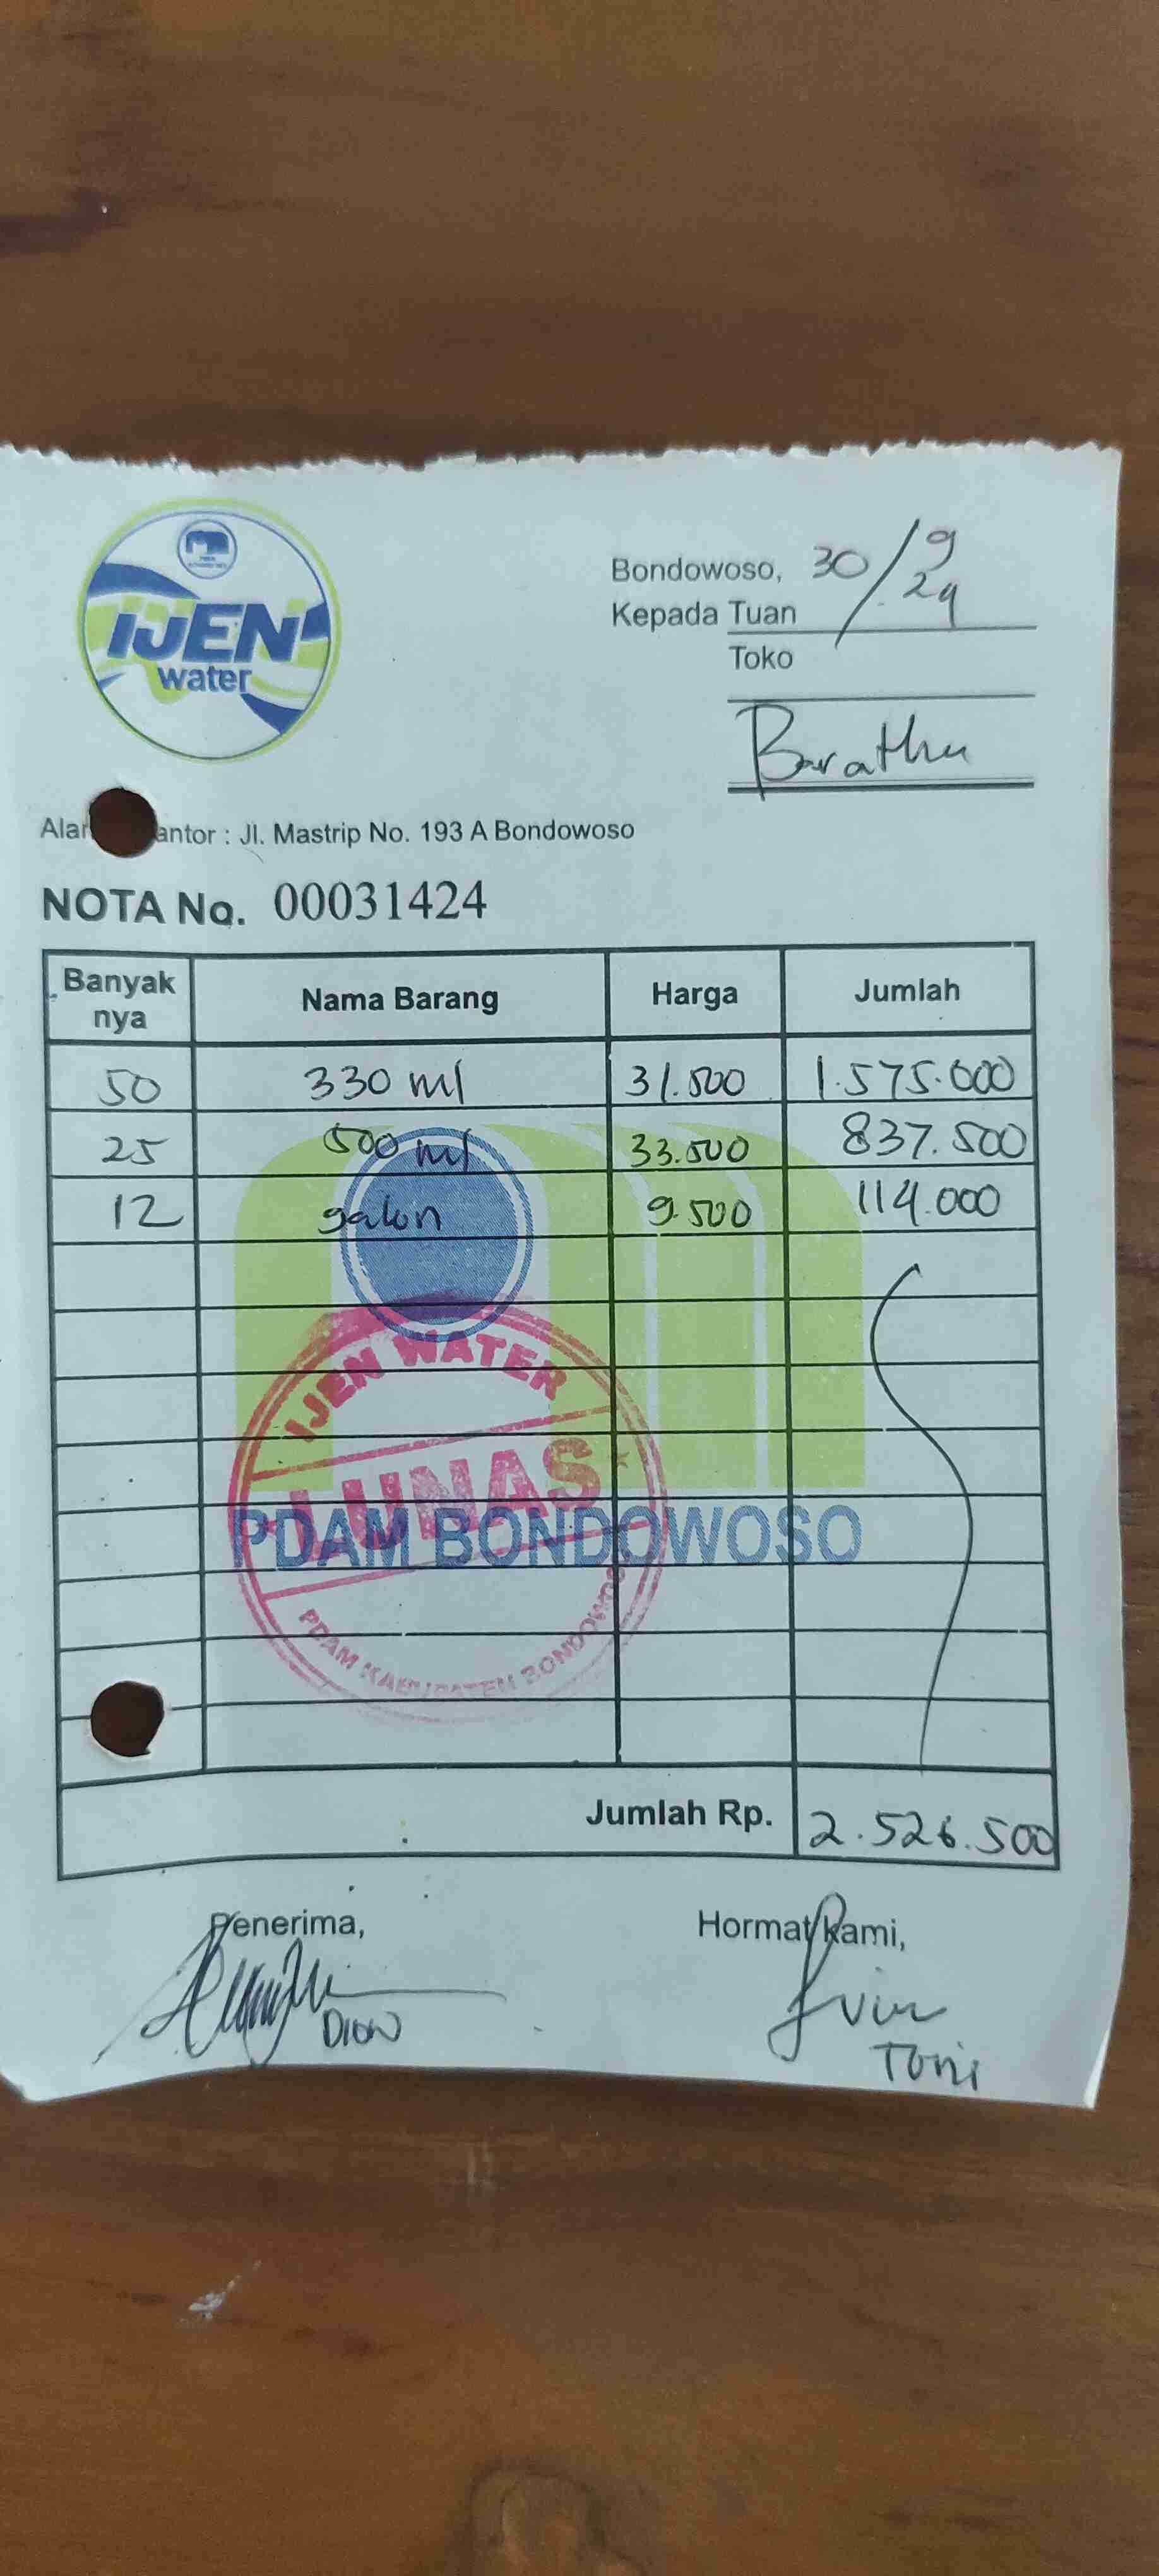 IJEN
water
Bondowoso, 30/9 24
Kepada Tuan
Toko
Barathu
Ala antor : Jl. Mastrip No. 193 A Bondowoso
NOTA No. 00031424
Banyak nya Nama Barang Harga Jumlah
50 330 ml 31.500 1.575.000
25 500 ml 33.500 837.500
12 galon 9.500 114.000
IJEN WATER
LUNAS
PDAM BONDOWOSO
PDAM KABUPATEN BONDOWOSO
Jumlah Rp. 2.526.500
Penerima, Hormat Kami,
DION Toni